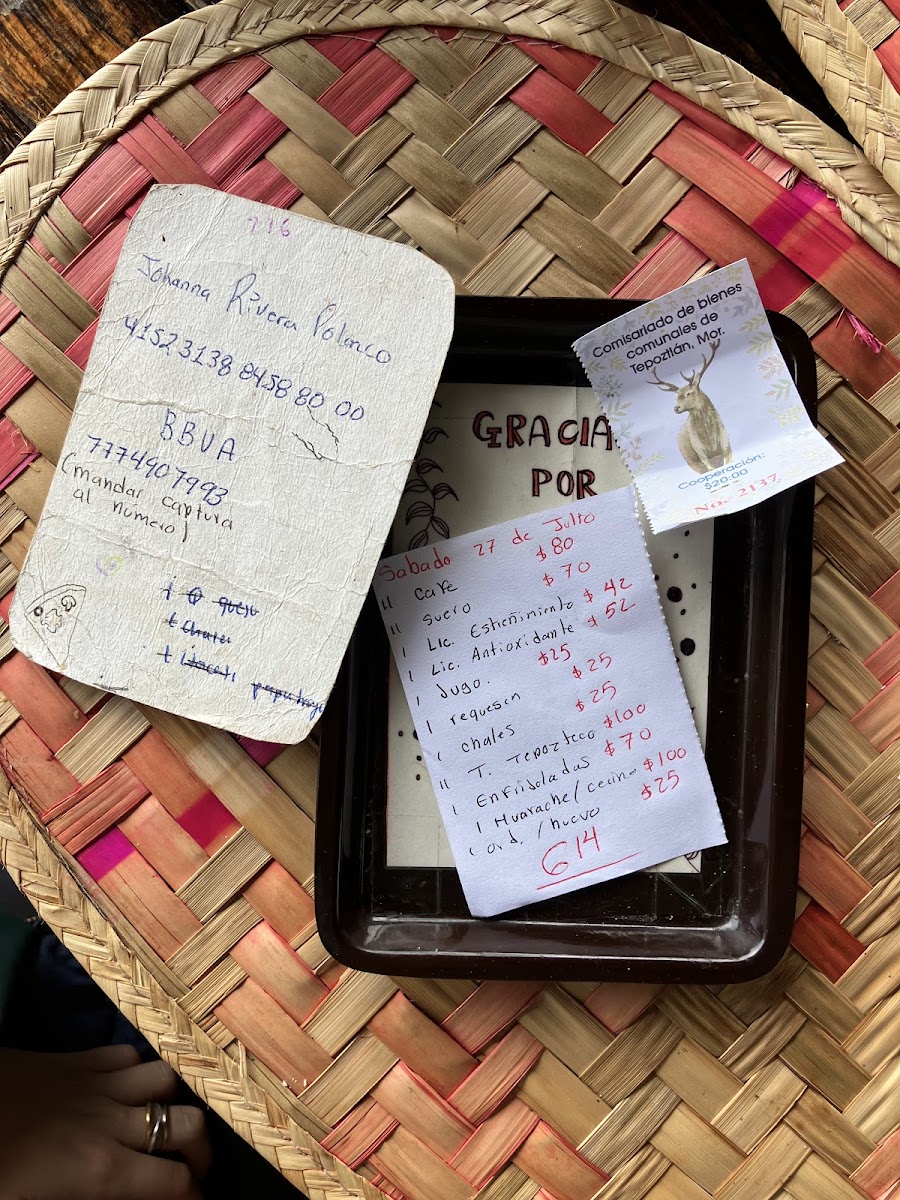 716
Johanna Rivera Polanco
4152 3138 8458 80 00
BBVA
7774907993
(mandar captura
al numero)
Comisariado de bienes
comunales de
Tepoztlán, Mor.
Cooperación:
$20.00
No. 2137
GRACIA
POR
Sabado 27 de Julio
11 Cafe $80
11 Suero $70
1 Lic. Estreñimiento $42
1 Lic. Antioxidante $52
1 Jugo. $25
1 requeson $25
1 chales $25
11 T. Tepozteco $100
1 Enfrijoladas $70
1 Huarache/cecina $100
1 ord. /huevo $25
614